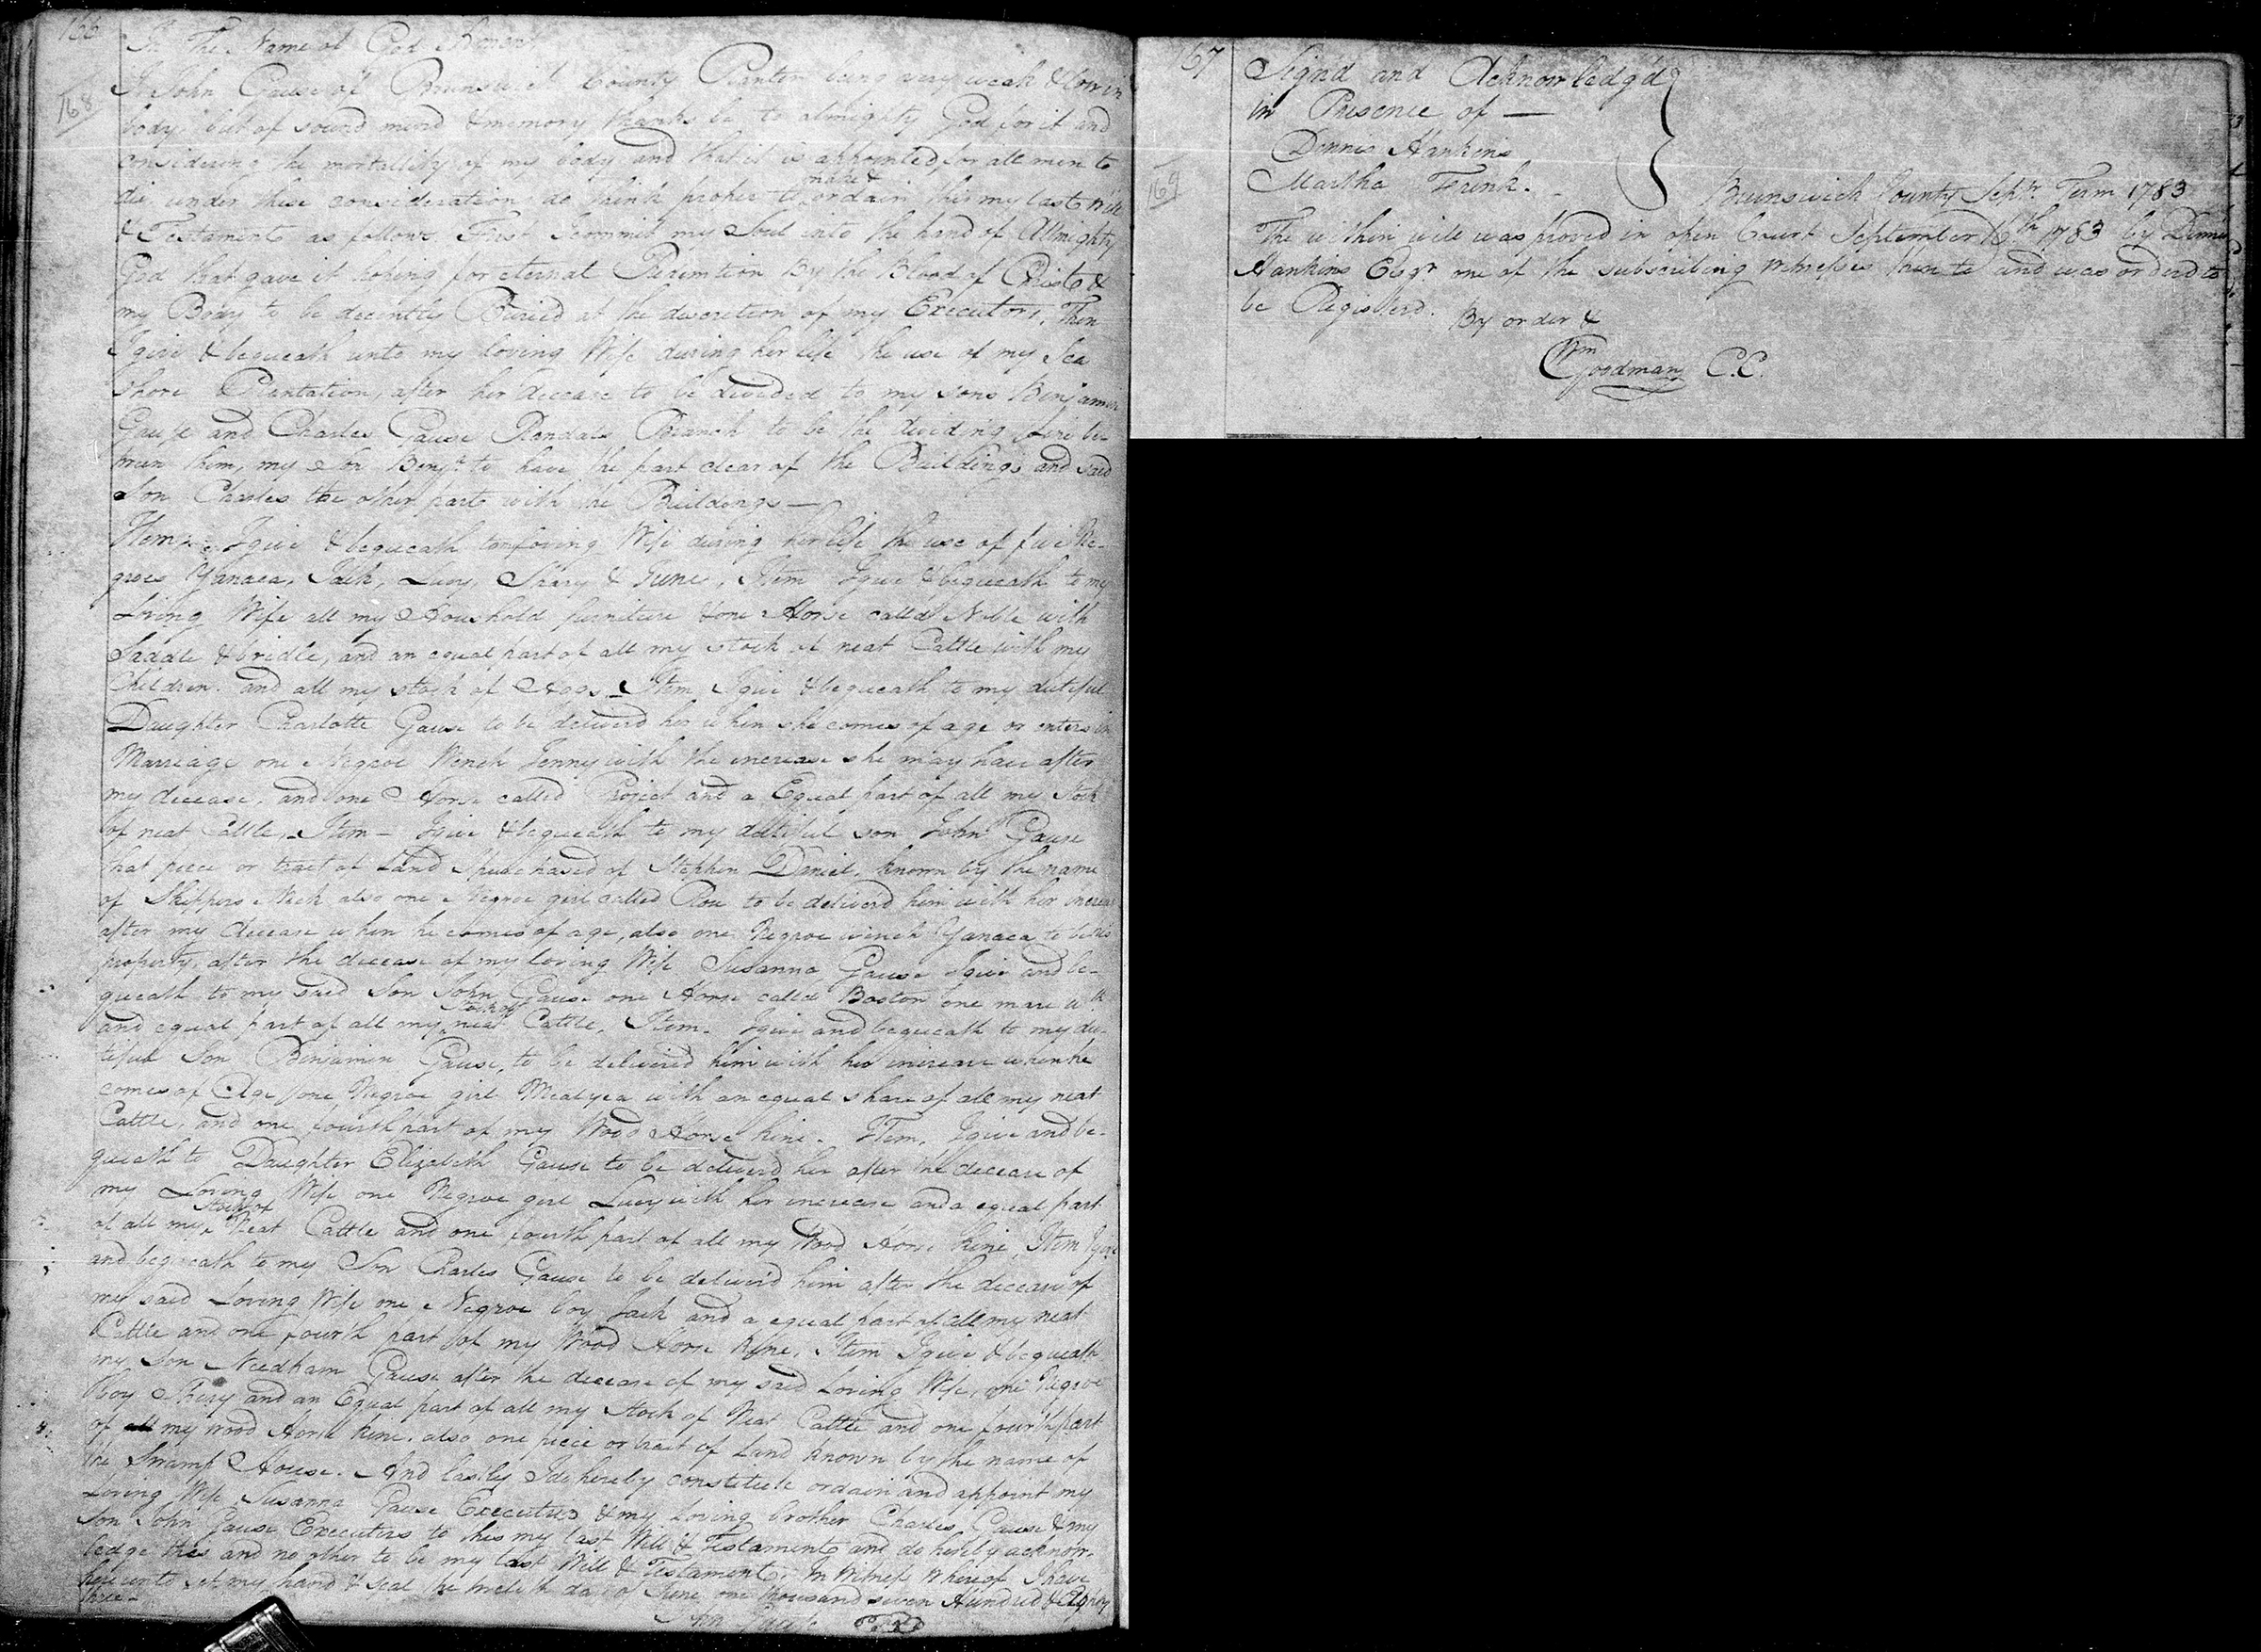 166
168
In The Name of God Amen
I John Gause of Brunswick County Planter being very weak & low in
body, but of sound mind & memory thanks be to almighty God for it and
considering the mortallity of my body and that it is appointed for all men to
die, under these consideration do think proper to make & ordain this my last Will
& Testament as follows First I commit my Soul into the hand of Allmighty
God that gave it hoping for eternal Redemtion By the Blood of Christ &
my Body to be decently Buried at the discretion of my Executors, Then
I give & bequeath unto my loving Wife during her life the use of my Sea
Shore Plantation, after her decease to be divided to my sons Benjamin
Gause and Charles Gause Branch to be the dividing line be-
tween them, my Son Benjn. to have the part clear of the Buildings and said
Son Charles the other part with the Buildings—
Item, I give & bequeath to my loving Wife during her life the use of five Ne-
groes Yanaca, Jack, Lucy, & June, Item I give & bequeath to my
Loving Wife all my Houshold furniture & one Horse called Noble with
Saddle & bridle, and an equal part of all my stock of neat Cattle with my
Children. and all my stock of Hogs - Item I give & bequeath to my dutiful
Daughter Charlotte Gause to be deliverd her when she comes of age or enters in
Marriage one Negroe Wench Jenny with the increase she may have after
my decease, and one Horse called Project and a Equal part of all my Stock
of neat Cattle, - Item - I give & bequeath to my dutiful son John Gause
that piece or tract of Land I purchased of Stephen Daniel, known by the name
of Skippers Neck also one Negroe girl called Rose to be deliverd him with her increase
after my decease when he comes of age, also one Negroe wench Yanaca to be his
property, after the decease of my loving Wife Susanna Gause I give and be-
queath to my said Son John Gause one Horse called Boston one mare with
and equal part of all my Stock of neat Cattle, Item. I give and bequeath to my du-
tiful Son Benjamin Gause, to be delivered him with her increase when he
comes of Age one Negroe girl with an equal share of all my neat
Cattle, and one fourth part of my Wood Horse kine. Item, I give and be-
queath to Daughter Elizabeth Gause to be deliverd her after the decease of
my Loving Wife one Negroe girl Lucy with her increase and a equal part
of all my Stock of Neat Cattle and one fourth part of all my Wood Horse kine, Item I give
and bequeath to my Son Charles Gause to be deliverd him after the decease of
my said Loving Wife one Negroe boy Jack and a equal part of all my neat
Cattle and one fourth part of my Wood Horse Kine, Item I give & bequeath
my Son Needham Gause after the decease of my said Loving Wife, one Negroe
Boy and an Equal part of all my Stock of Neat Cattle and one fourth part
of all my wood Horse kine. also one piece or tract of Land known by the name of
the Swamp House. And lastly I do hereby constitute ordain and appoint my
Loving Wife Susanna Gause Executrix & my Loving brother Charles Gause & my
Son John Gause Executors to this my last Will & Testament and do hereby acknow-
ledge this and no other to be my last Will & Testament. In Witness whereof I have
hereunto set my hand & seal the twelfth day of June one thousand seven Hundred & Eighty
three -
John Gause
167
169
Signd and Acknowledg'd
in Presence of —
Dennis Hankins
Martha Frink.
Brunswick County Septr. Term 1783
The within will was proved in open Court September 16th 1783 by Dennis
Hankins Esqr. one of the subscribing witnesses thereto and was orderd to
be Registerd. By order &
Wm Goodman C.C.